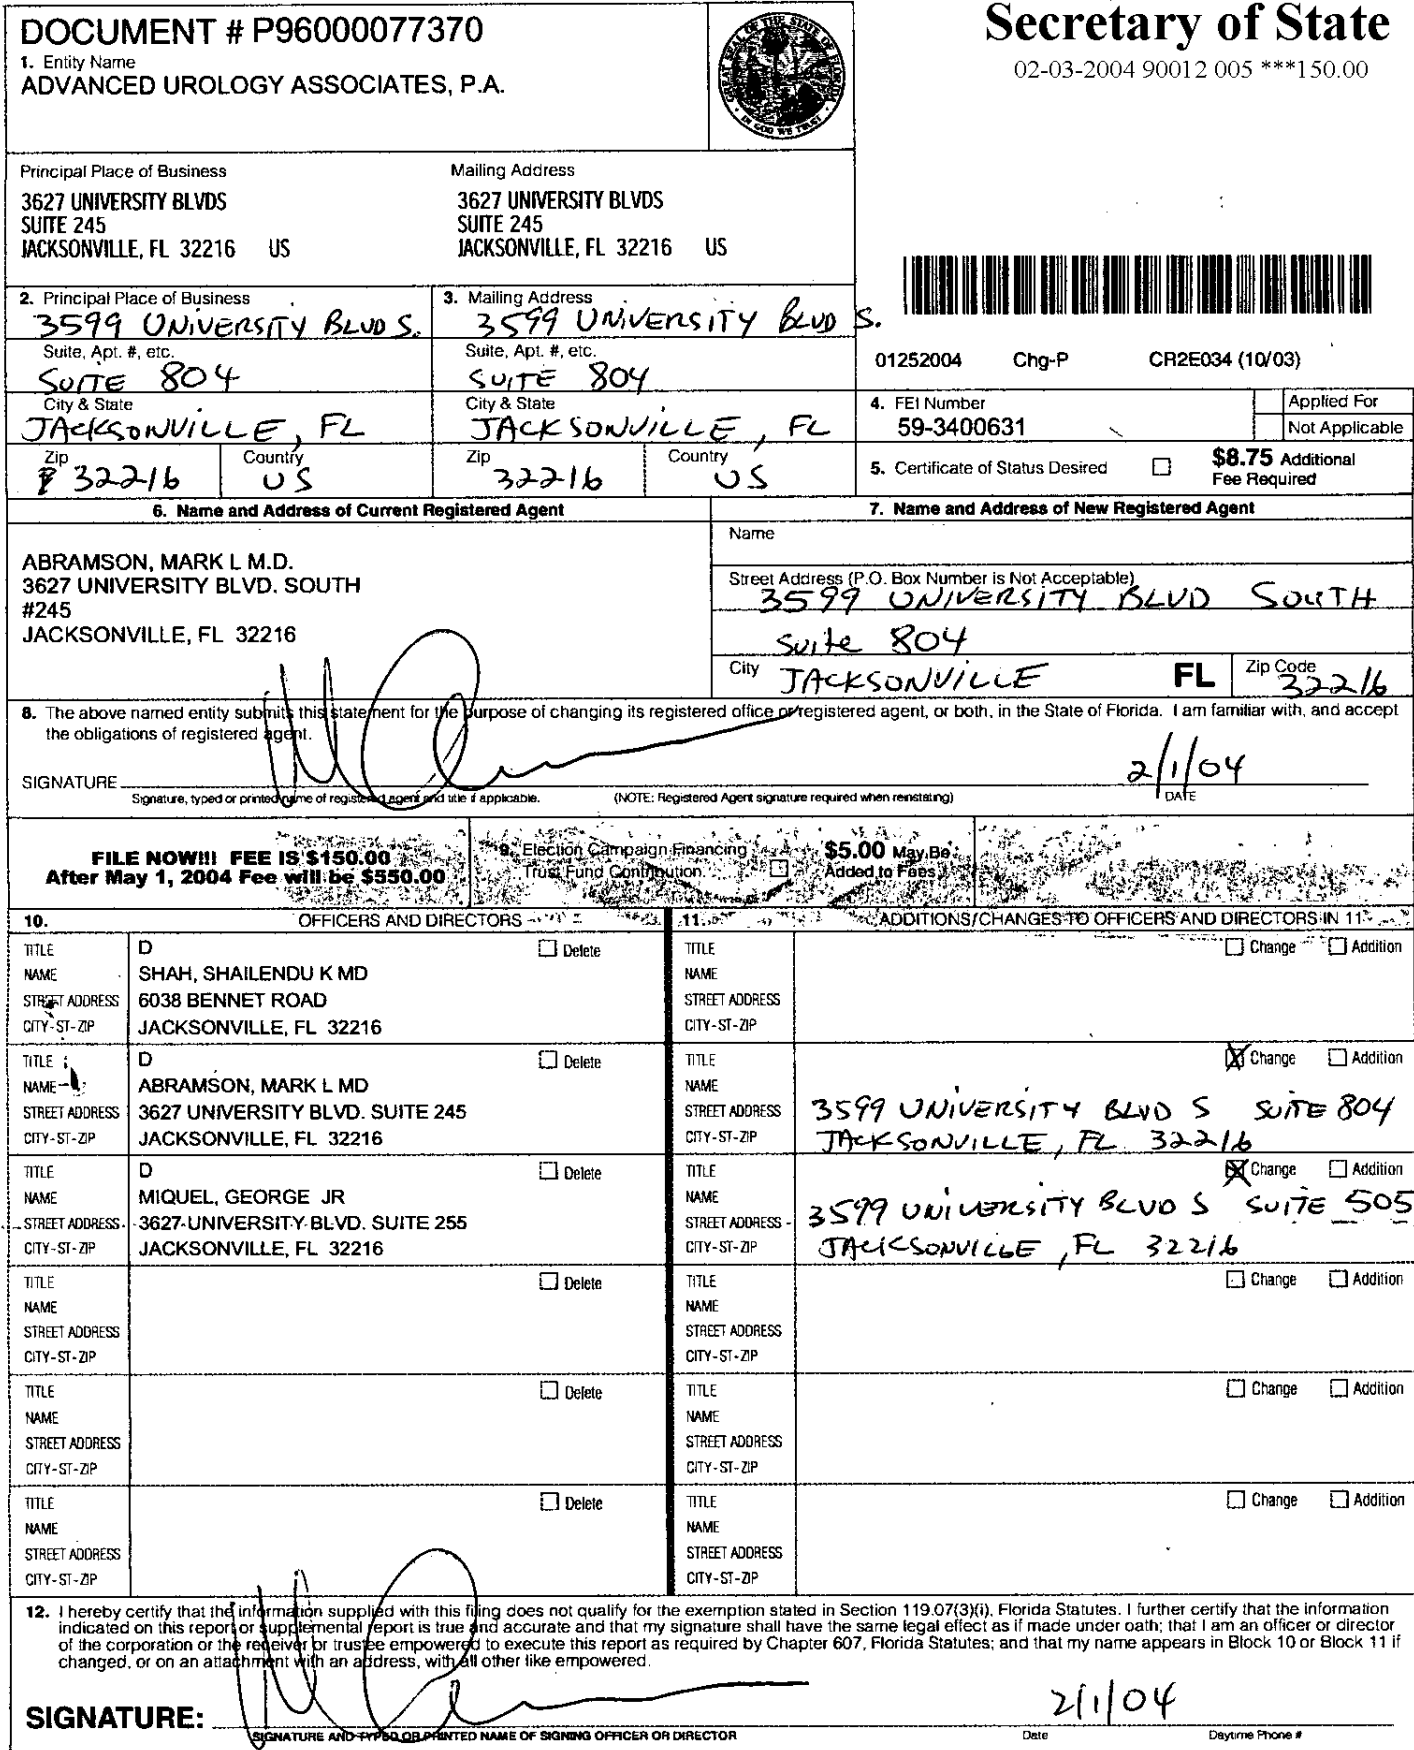 DOCUMENT # P96000077370
1. Entity Name
ADVANCED UROLOGY ASSOCIATES, P.A.
GREAT SEAL OF THE STATE OF FLORIDA
IN GOD WE TRUST
Secretary of State
02-03-2004 90012 005 ***150.00
Principal Place of Business
3627 UNIVERSITY BLVDS
SUITE 245
JACKSONVILLE, FL 32216 US
Mailing Address
3627 UNIVERSITY BLVDS
SUITE 245
JACKSONVILLE, FL 32216 US
2. Principal Place of Business
3599 UNIVERSITY BLVD S.
Suite, Apt. #, etc.
SUITE 804
City & State
JACKSONVILLE, FL
Zip
32216
Country
US
3. Mailing Address
3599 UNIVERSITY BLVD S.
Suite, Apt. #, etc.
SUITE 804
City & State
JACKSONVILLE, FL
Zip
32216
Country
US
01252004 Chg-P CR2E034 (10/03)
4. FEI Number
59-3400631
Applied For
Not Applicable
5. Certificate of Status Desired
$8.75 Additional
Fee Required
6. Name and Address of Current Registered Agent
ABRAMSON, MARK L M.D.
3627 UNIVERSITY BLVD. SOUTH
#245
JACKSONVILLE, FL 32216
7. Name and Address of New Registered Agent
Name
Street Address (P.O. Box Number is Not Acceptable)
3599 UNIVERSITY BLVD SOUTH
Suite 804
City JACKSONVILLE FL Zip Code 32216
8. The above named entity submits this statement for the purpose of changing its registered office or registered agent, or both, in the State of Florida. I am familiar with, and accept
the obligations of registered agent.
SIGNATURE
2/1/04
Signature, typed or printed name of registered agent and title if applicable. (NOTE: Registered Agent signature required when reinstating) DATE
FILE NOW!!! FEE IS $150.00
After May 1, 2004 Fee will be $550.00
9. Election Campaign Financing
Trust Fund Contribution.
$5.00 May Be
Added to Fees
10. OFFICERS AND DIRECTORS
11. ADDITIONS/CHANGES TO OFFICERS AND DIRECTORS IN 11
TITLE D Delete
NAME SHAH, SHAILENDU K MD
STREET ADDRESS 6038 BENNET ROAD
CITY-ST-ZIP JACKSONVILLE, FL 32216
TITLE Change Addition
NAME
STREET ADDRESS
CITY-ST-ZIP
TITLE D Delete
NAME ABRAMSON, MARK L MD
STREET ADDRESS 3627 UNIVERSITY BLVD. SUITE 245
CITY-ST-ZIP JACKSONVILLE, FL 32216
TITLE X Change Addition
NAME
STREET ADDRESS 3599 UNIVERSITY BLVD S SUITE 804
CITY-ST-ZIP JACKSONVILLE, FL 32216
TITLE D Delete
NAME MIQUEL, GEORGE JR
STREET ADDRESS 3627 UNIVERSITY BLVD. SUITE 255
CITY-ST-ZIP JACKSONVILLE, FL 32216
TITLE X Change Addition
NAME
STREET ADDRESS 3599 UNIVERSITY BLVD S SUITE 505
CITY-ST-ZIP JACKSONVILLE, FL 32216
TITLE Delete
NAME
STREET ADDRESS
CITY-ST-ZIP
TITLE Change Addition
NAME
STREET ADDRESS
CITY-ST-ZIP
TITLE Delete
NAME
STREET ADDRESS
CITY-ST-ZIP
TITLE Change Addition
NAME
STREET ADDRESS
CITY-ST-ZIP
TITLE Delete
NAME
STREET ADDRESS
CITY-ST-ZIP
TITLE Change Addition
NAME
STREET ADDRESS
CITY-ST-ZIP
12. I hereby certify that the information supplied with this filing does not qualify for the exemption stated in Section 119.07(3)(i), Florida Statutes. I further certify that the information
indicated on this report or supplemental report is true and accurate and that my signature shall have the same legal effect as if made under oath; that I am an officer or director
of the corporation or the receiver or trustee empowered to execute this report as required by Chapter 607, Florida Statutes; and that my name appears in Block 10 or Block 11 if
changed, or on an attachment with an address, with all other like empowered.
SIGNATURE:
2/1/04
SIGNATURE AND TYPED OR PRINTED NAME OF SIGNING OFFICER OR DIRECTOR Date Daytime Phone #